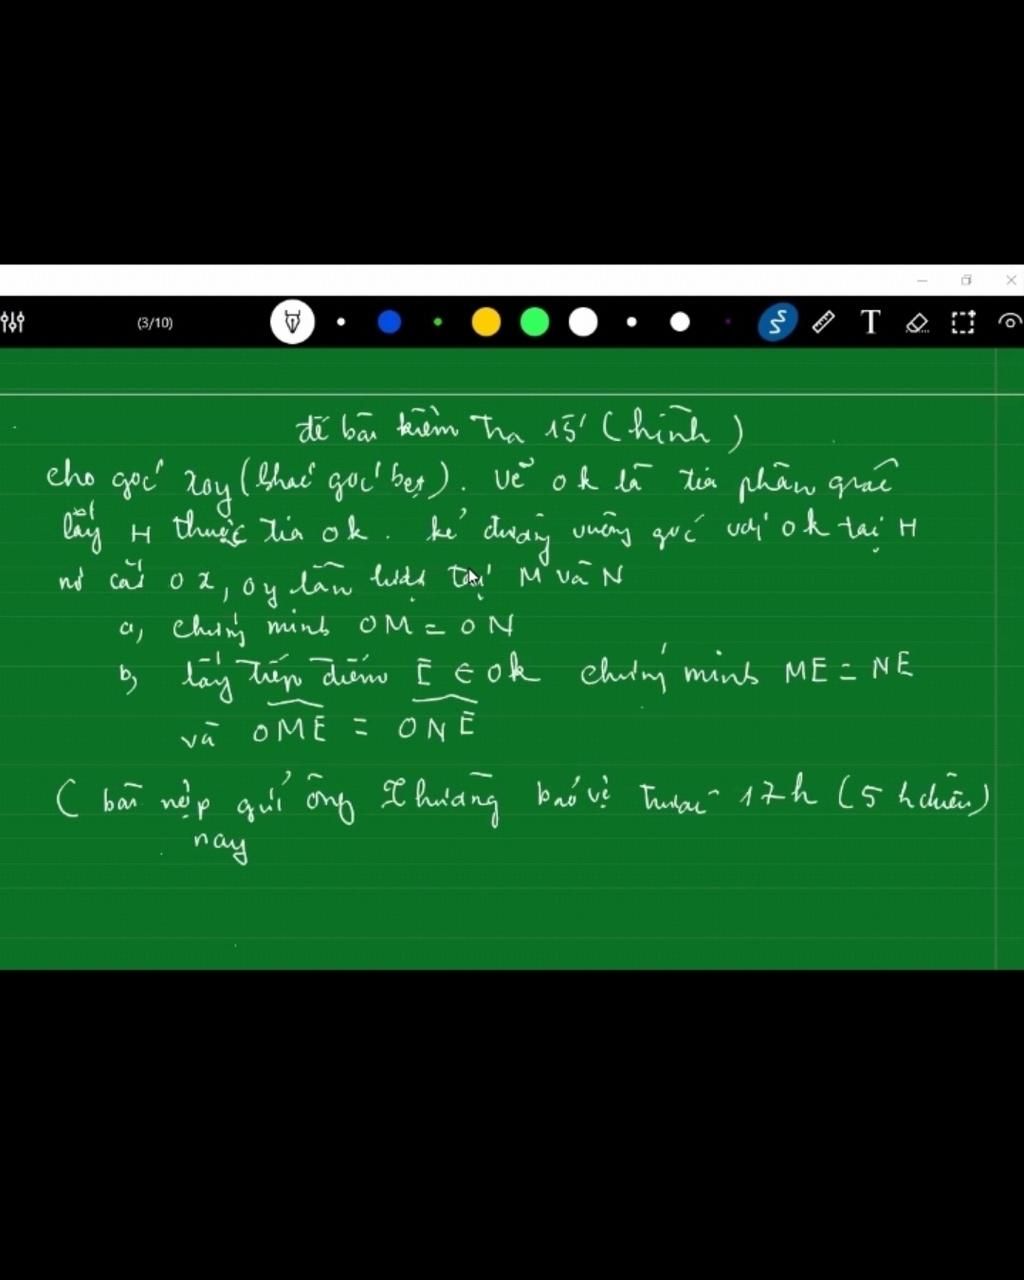 (3/10)
T
đề bài kiểm tra 15' (hình)
cho góc xoy (khác góc bẹt). Vẽ ok là tia phân giác
lấy H thuộc tia ok. kẻ đường vuông góc với ok tại H
nó cắt ox, oy lần lượt tại M và N
a, chứng minh OM = ON
b, lấy tiếp điểm E ∈ ok chứng minh ME = NE
và OME = ONE
(bài nộp gửi ông Thường bảo vệ trước 17h (5h chiều)
nay